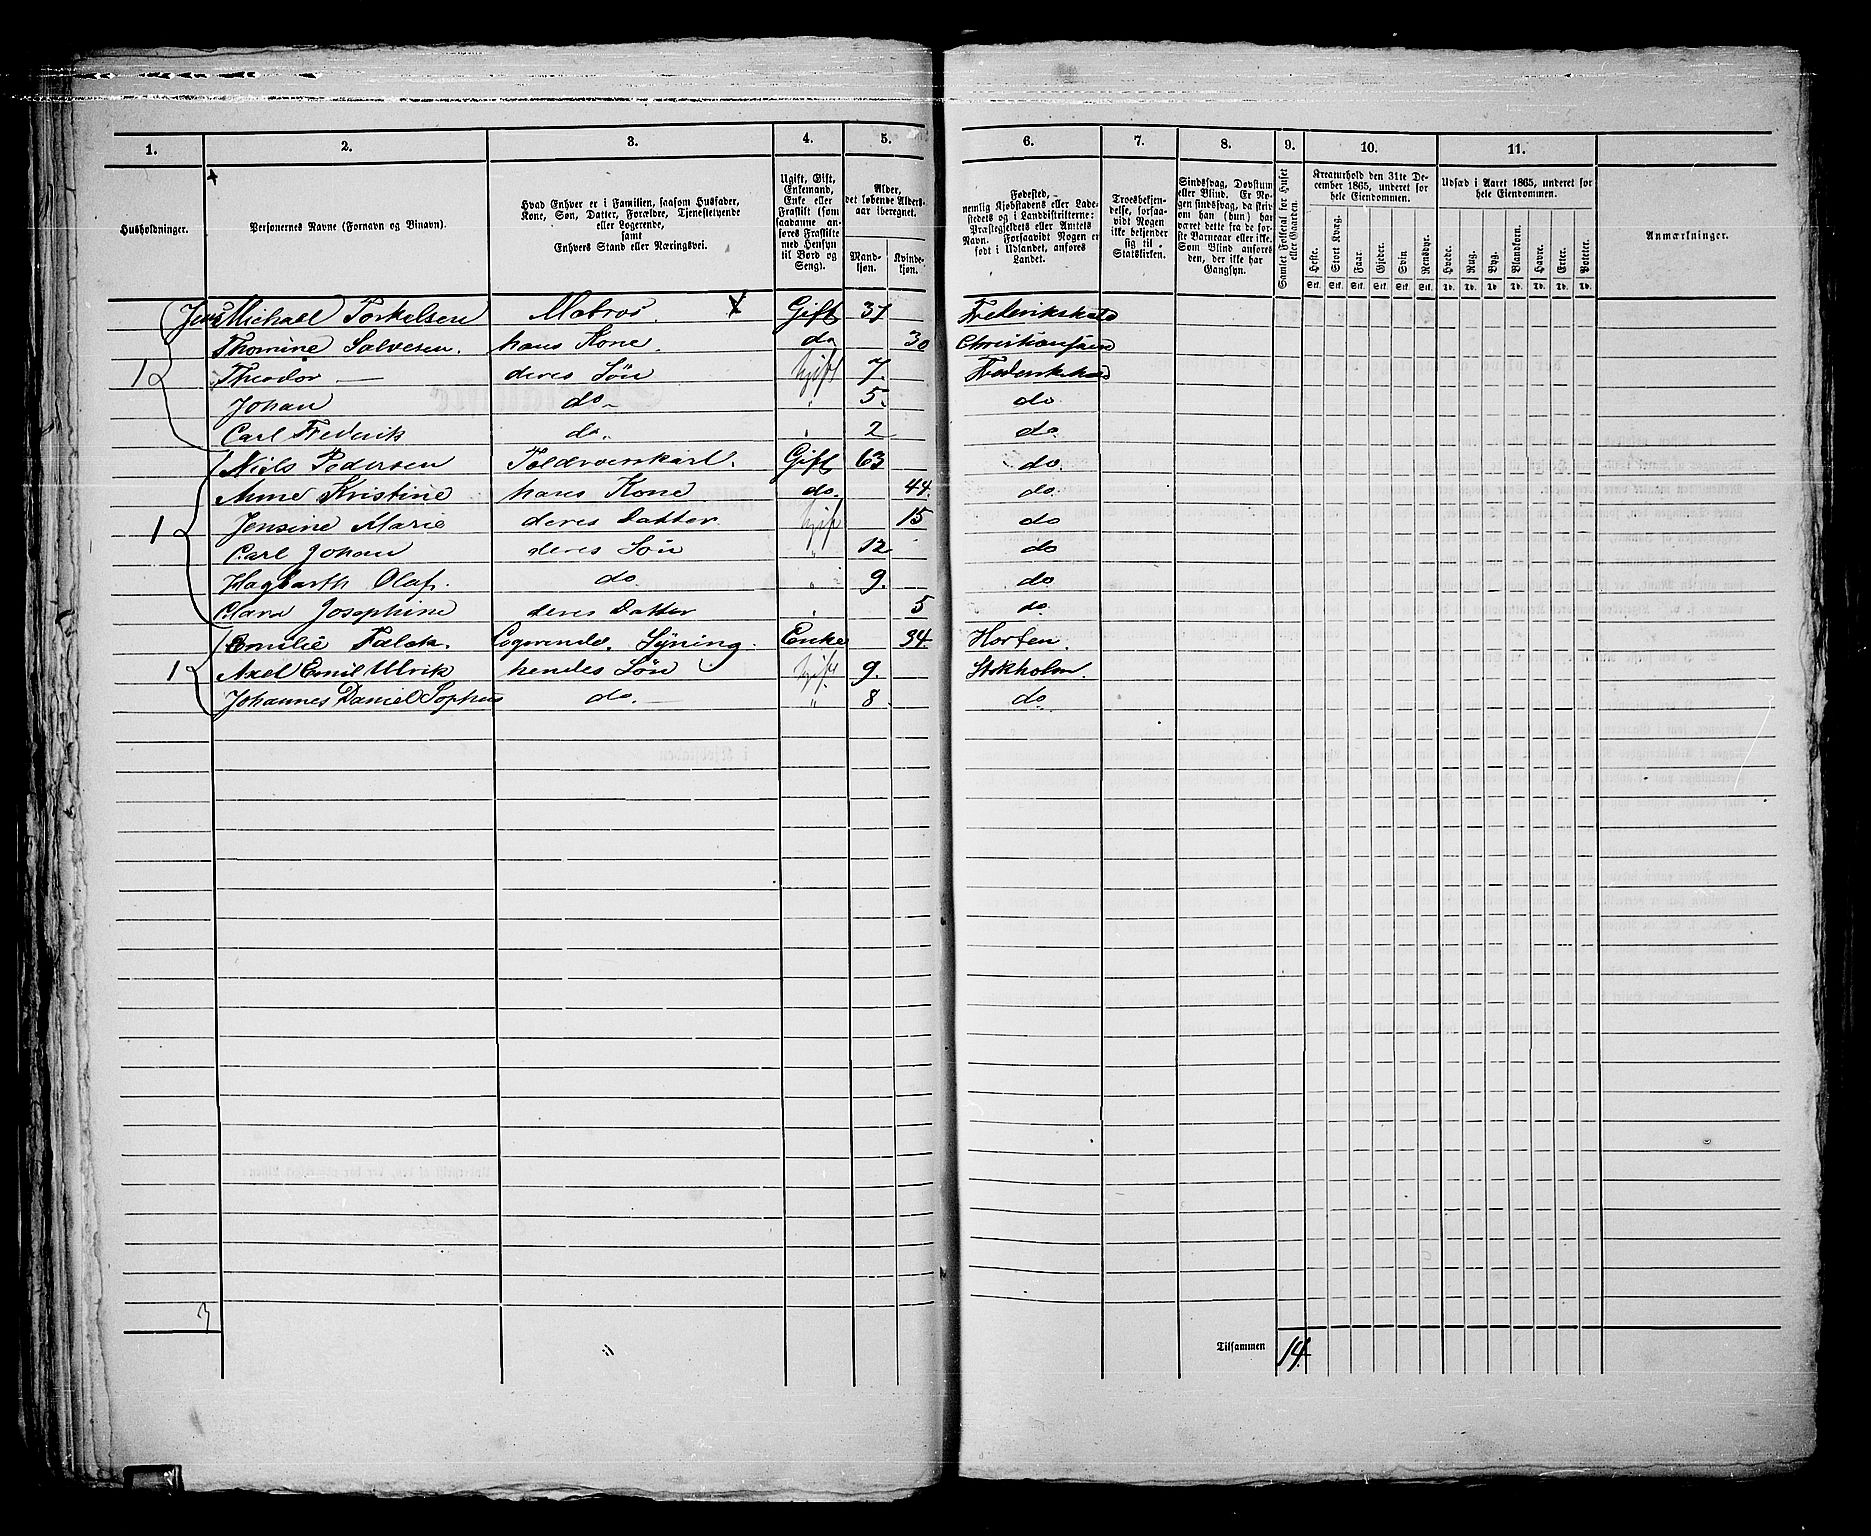 1. 2. 3. 4. 5. 6. 7. 8. 9. 10. 11.
Husholdninger.
Personernes Navne (Fornavn og Binavn).
Hvad Enhver er i Familien, saasom Husfader,
Kone, Søn, Datter, Forældre, Tjenestetyende
eller Logerende,
samt
Enhvers Stand eller Næringsvei.
Ugift, Gift,
Enkemand,
Enke eller
Fraskilt (som
saadanne an-
føres Fraskilte
med Hensyn
til Bord og
Seng).
Alder,
det løbende Alders-
aar iberegnet.
Mand-
kjøn.
Kvinde-
kjøn.
Fødested,
nemlig Kjøbstadens eller Lade-
stedets og i Landdistrikterne:
Præstegjeldets eller Amtets
Navn. Forsaavidt Nogen er
født i Udlandet, anføres
Landet.
Troesbekjen-
delse, forsaa-
vidt Nogen
ikke bekjender
sig til
Statskirken.
Sindssvag, Døvstum
eller Blind. Er No-
gen sindssvag, da skriv
om han (hun) har
været dette fra de før-
ste Barneaar eller ikke.
Som Blind anføres
den, der ikke har
Gangsyn.
Samlet Folketal for Huset
eller Gaarden.
Kreaturhold den 31te De-
cember 1865, underet for
hele Eiendommen.
Heste. Stort Kvæg. Faar. Gjeder. Svin Rensdyr.
Stk. Stk. Stk. Stk. Stk. Stk.
Udsæd i Aaret 1865, underet for
hele Eiendommen.
Hvede. Rug. Byg. Blandkorn. Havre. Erter. Poteter.
Td. Td. Td. Td. Td. Td. Td.
Anmærkninger.
Jens Michael Torkelsen Matros. Gift 37 Frederikshald
Thomine Salvesen. hans Kone. do 30 Christiansand
1 Theodor — deres Søn Ugift 7. Frederikshald
Johan do 5. do
Carl Frederik do. " 2 do
Niels Pedersen Gift 63 do
Anne Kristine hans Kone do. 44. do
1 Jensine Marie deres Datter Ugift 15 do
Carl Johan deres Søn " 12 do
Hagbarth Olaf. do. " 9. do
Clara Josephine deres Datter " 5 do
Emilie Falck. Logerende. Syning. Enke 34. Horten.
1 Axel Emil Ulrik hendes Søn Ugift 9. Stokholm.
Johannes Daniel Sophus do. " 8 do.
3
Tilsammen 14.